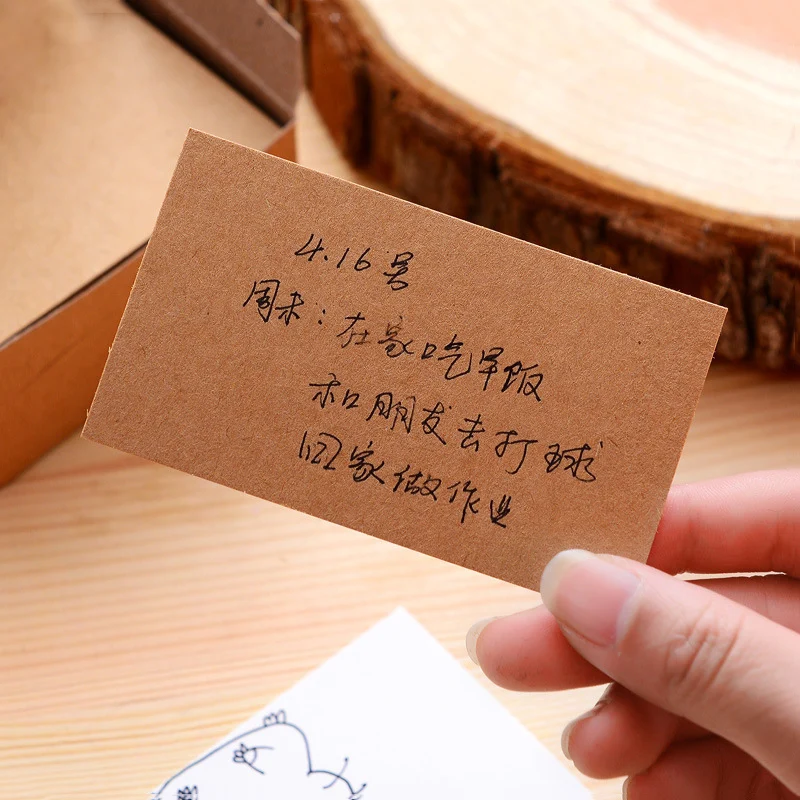 4.16号
周末:在家吃早饭
和朋友去打球
回家做作业